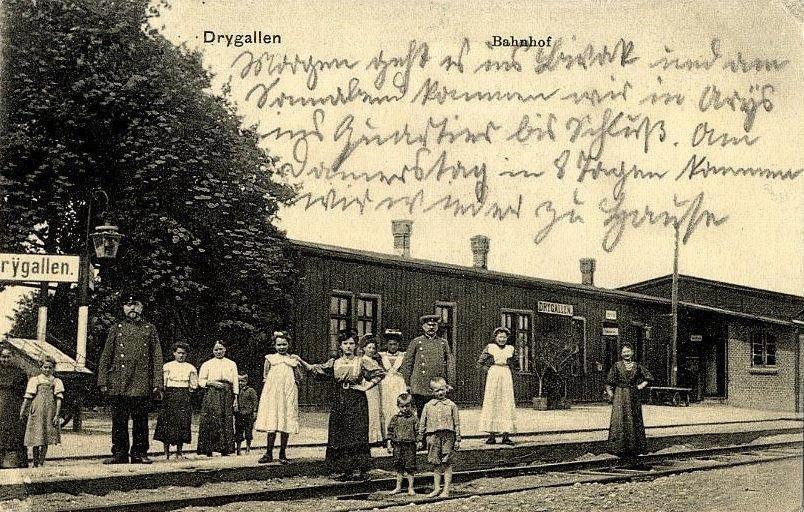 Drygallen
Bahnhof
Morgen geht es ins Bivak und am
Sonnabend kommen wir in Arys
ins Quartier bis Schluß. Am
Donnerstag in 8 Tagen kommen
wir wieder zu Hause
rygallen.
DRYGALLEN